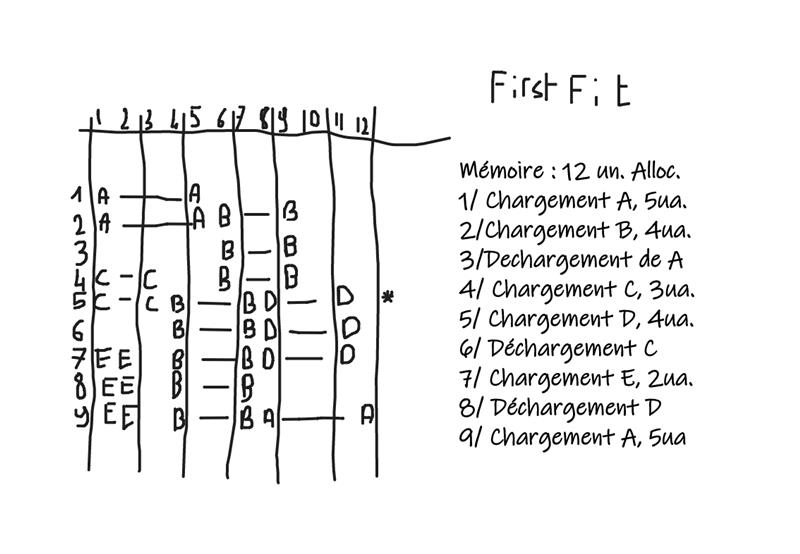 First Fit
1 2 3 4 5 6 7 8 9 10 11 12
1 A — A
2 A — A B — B
3 B — B
4 C - C B — B
5 C - C B — B D — D *
6 B — B D — D
7 E E B — B D — D
8 E E B — B
9 E E B — B A — A
Mémoire : 12 un. Alloc.
1/ Chargement A, 5ua.
2/Chargement B, 4ua.
3/Dechargement de A
4/ Chargement C, 3ua.
5/ Chargement D, 4ua.
6/ Déchargement C
7/ Chargement E, 2ua.
8/ Déchargement D
9/ Chargement A, 5ua